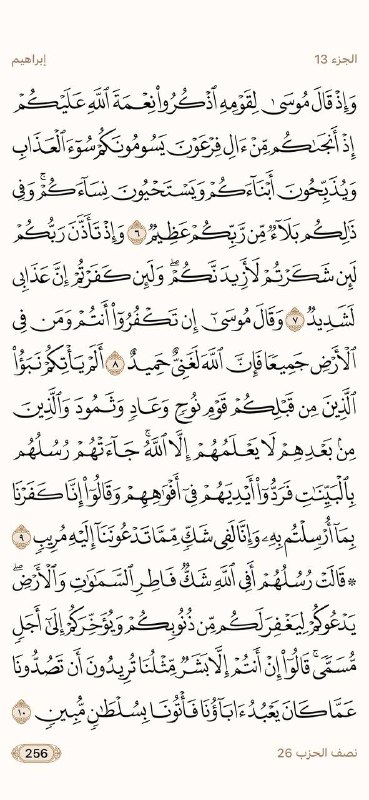 الجزء 13
إبراهيم
وَإِذْ قَالَ مُوسَىٰ لِقَوْمِهِ ٱذْكُرُوا۟ نِعْمَةَ ٱللَّهِ عَلَيْكُمْ
إِذْ أَنجَىٰكُم مِّنْ ءَالِ فِرْعَوْنَ يَسُومُونَكُمْ سُوٓءَ ٱلْعَذَابِ
وَيُذَبِّحُونَ أَبْنَآءَكُمْ وَيَسْتَحْيُونَ نِسَآءَكُمْ ۚ وَفِى
ذَٰلِكُم بَلَآءٌ مِّن رَّبِّكُمْ عَظِيمٌ ٦ وَإِذْ تَأَذَّنَ رَبُّكُمْ
لَئِن شَكَرْتُمْ لَأَزِيدَنَّكُمْ ۖ وَلَئِن كَفَرْتُمْ إِنَّ عَذَابِى
لَشَدِيدٌ ٧ وَقَالَ مُوسَىٰٓ إِن تَكْفُرُوٓا۟ أَنتُمْ وَمَن فِى
ٱلْأَرْضِ جَمِيعًا فَإِنَّ ٱللَّهَ لَغَنِىٌّ حَمِيدٌ ٨ أَلَمْ يَأْتِكُمْ نَبَؤُا۟
ٱلَّذِينَ مِن قَبْلِكُمْ قَوْمِ نُوحٍ وَعَادٍ وَثَمُودَ ۛ وَٱلَّذِينَ
مِنۢ بَعْدِهِمْ ۛ لَا يَعْلَمُهُمْ إِلَّا ٱللَّهُ ۚ جَآءَتْهُمْ رُسُلُهُم
بِٱلْبَيِّنَٰتِ فَرَدُّوٓا۟ أَيْدِيَهُمْ فِىٓ أَفْوَٰهِهِمْ وَقَالُوٓا۟ إِنَّا كَفَرْنَا
بِمَآ أُرْسِلْتُم بِهِۦ وَإِنَّا لَفِى شَكٍّ مِّمَّا تَدْعُونَنَآ إِلَيْهِ مُرِيبٍ ٩
۞ قَالَتْ رُسُلُهُمْ أَفِى ٱللَّهِ شَكٌّ فَاطِرِ ٱلسَّمَٰوَٰتِ وَٱلْأَرْضِ ۖ
يَدْعُوكُمْ لِيَغْفِرَ لَكُم مِّن ذُنُوبِكُمْ وَيُؤَخِّرَكُمْ إِلَىٰٓ أَجَلٍ
مُّسَمًّى ۚ قَالُوٓا۟ إِنْ أَنتُمْ إِلَّا بَشَرٌ مِّثْلُنَا تُرِيدُونَ أَن تَصُدُّونَا
عَمَّا كَانَ يَعْبُدُ ءَابَآؤُنَا فَأْتُونَا بِسُلْطَٰنٍ مُّبِينٍ ١٠
نصف الحزب 26
256